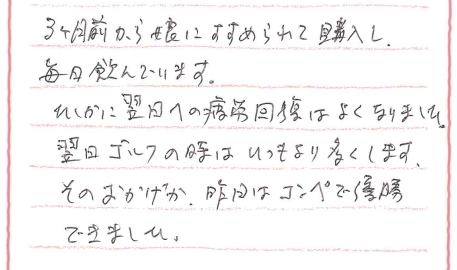 3ヶ月前から娘にすすめられて購入し、
毎日飲んでいます。
たしかに翌日への疲労回復はよくなりました。
翌日ゴルフの時はいつもより多くします。
そのおかげか、昨日はコンペで優勝
できました。